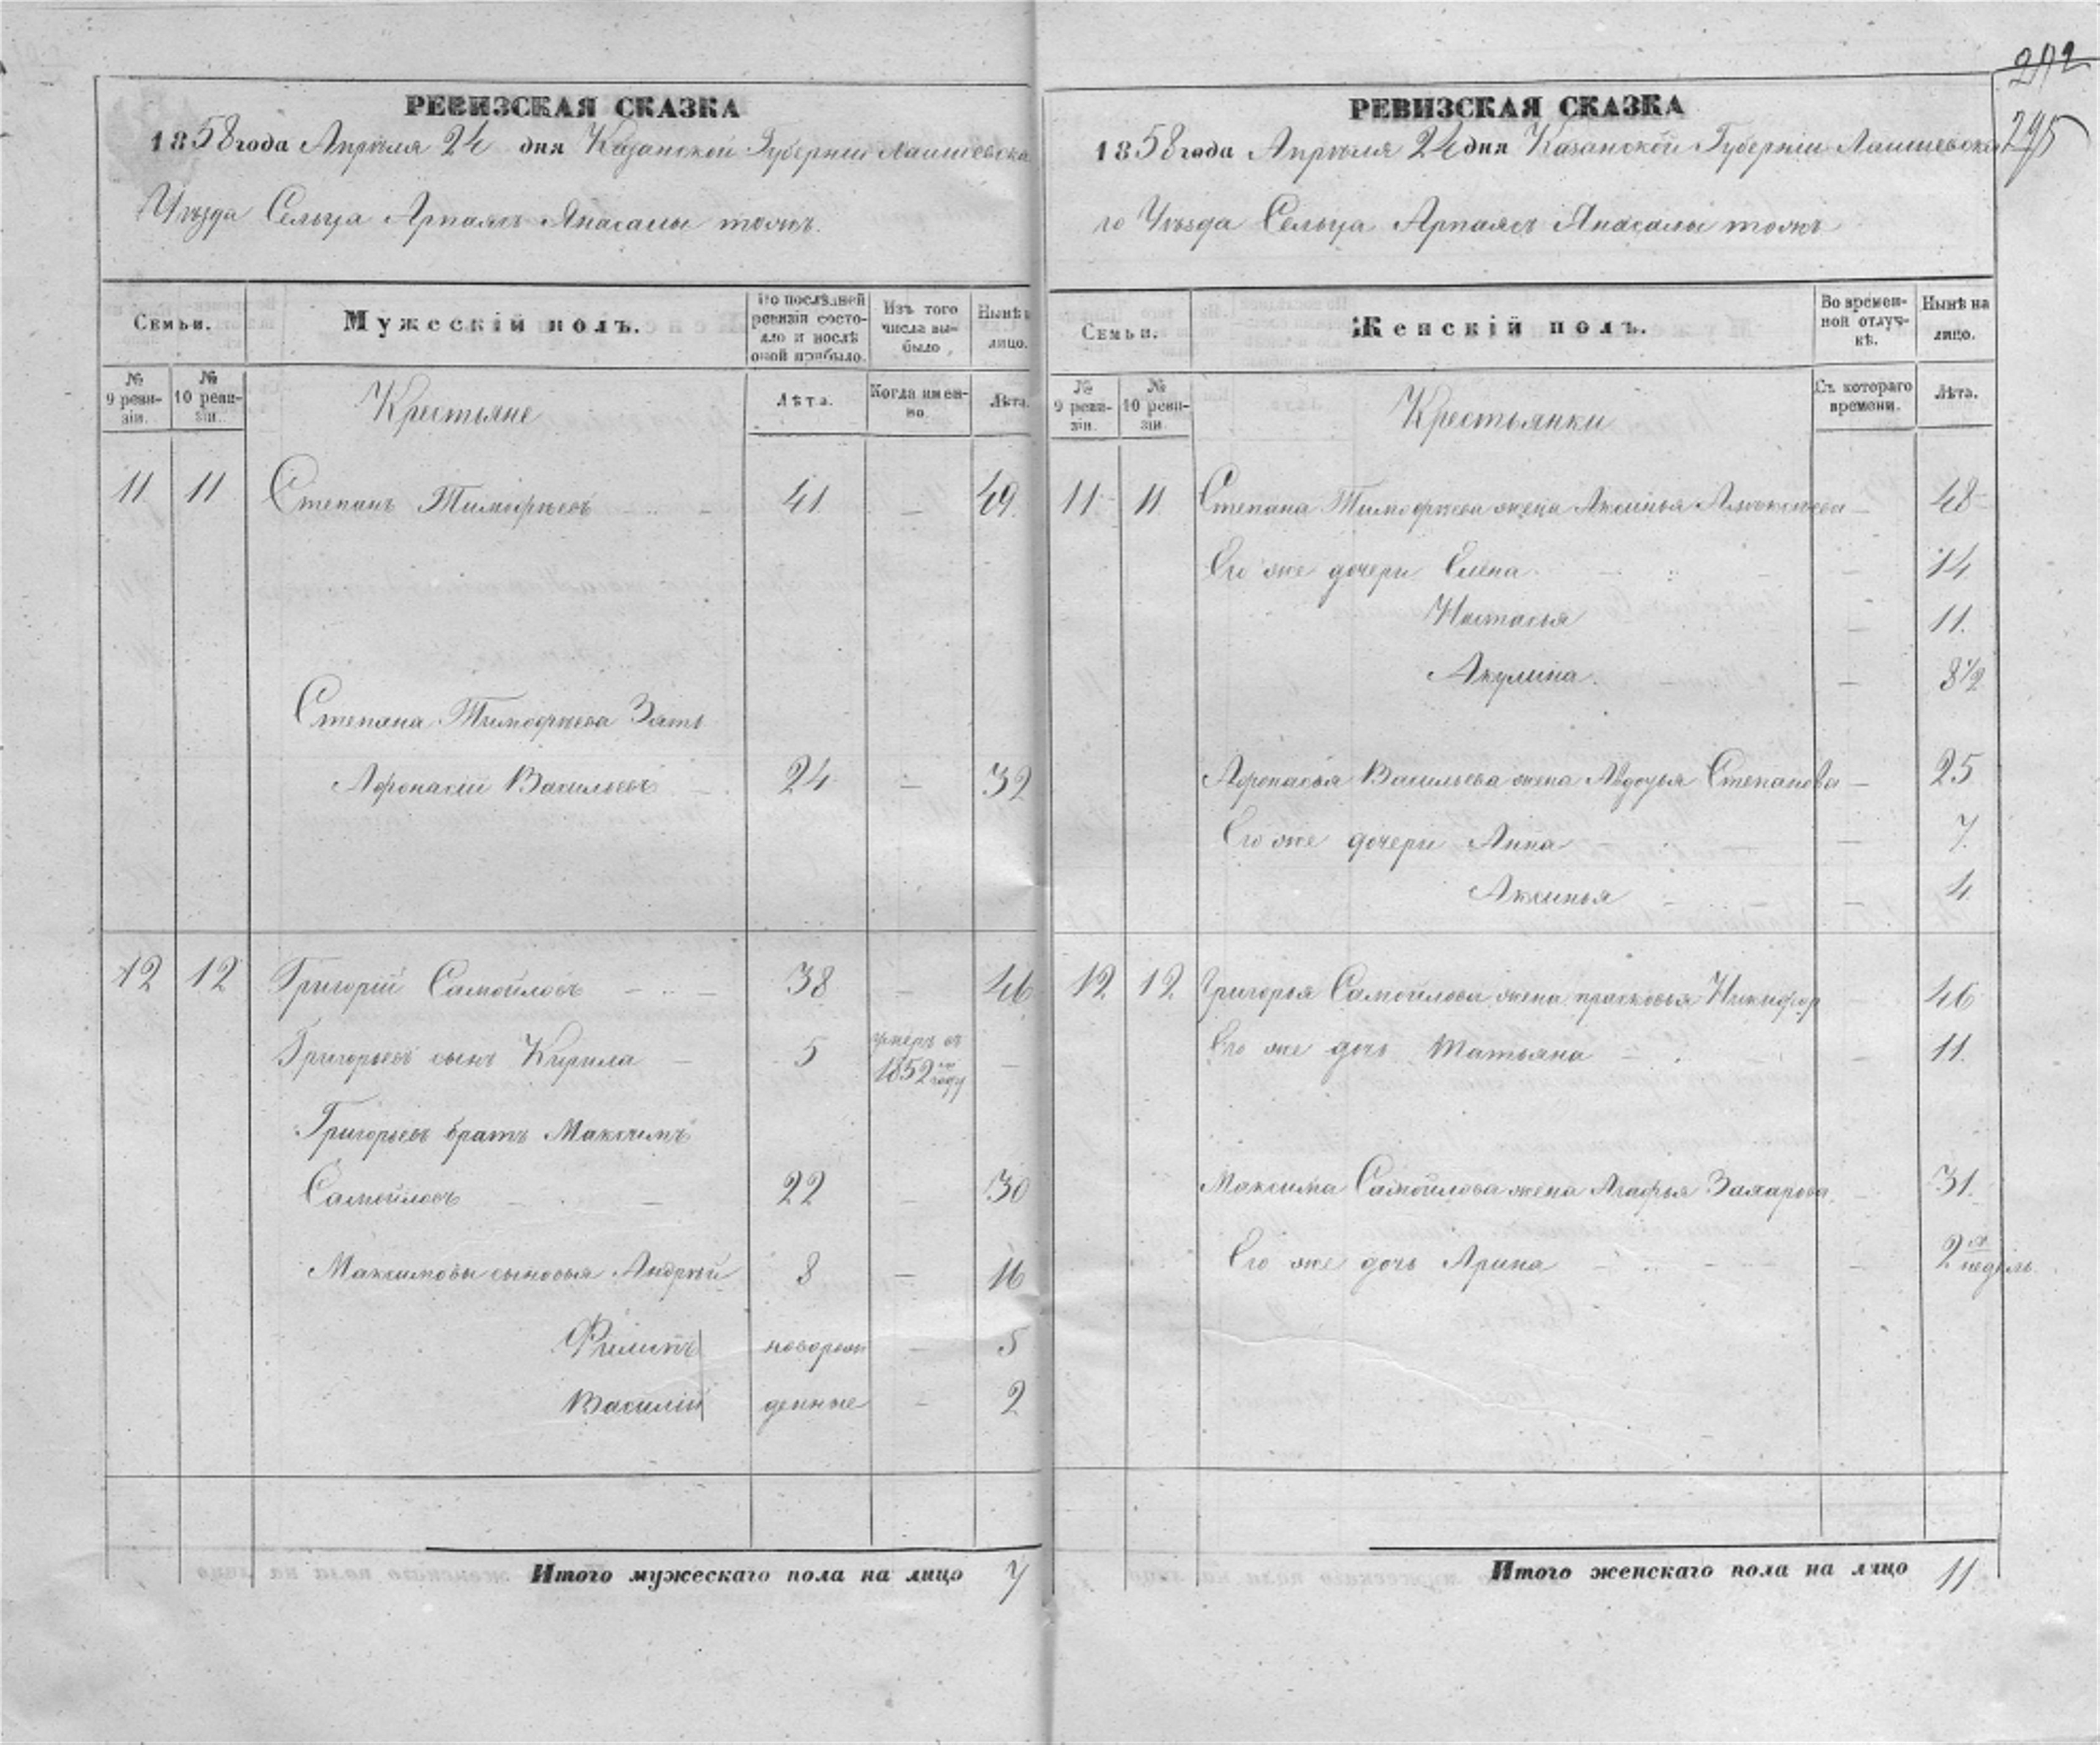 272
295
РЕВИЗСКАЯ СКАЗКА
1858 года Апрѣля 24 дня Казанской Губерніи Лаишевска
Уѣзда Сельца Арпаясъ Янасалы тожъ.
Семьи.
Мужескій полъ.
По послѣдней ревизіи состояло и послѣ оной прибыло.
Изъ того числа выбыло
Нынѣ на лицо.
№ 9 ревизіи.
№ 10 ревизіи.
Крестьяне
Лѣта.
Когда именно.
Лѣта.
11 11 Степанъ Тимофѣевъ 41 — 49.
Степана Тимофѣева Зять
Афонасій Васильевъ 24 — 32
12 12 Григорій Самойловъ 38 — 46
Григорьевъ сынъ Кирила 5 умеръ въ 1852 м году —
Григорьевъ братъ Максимъ
Самойловъ 22 — 30
Максимовы сыновья Андрей 8 — 16
Филипъ новорож — 5
Василій денные — 2
Итого мужескаго пола на лицо 7
РЕВИЗСКАЯ СКАЗКА
1858 года Апрѣля 24 дня Казанской Губерніи Лаишевска
го Уѣзда Сельца Арпаясъ Янасалы тожъ
Семьи.
Женскій полъ.
Во временной отлучкѣ.
Нынѣ на лицо.
№ 9 ревизіи.
№ 10 ревизіи.
Крестьянки
Съ котораго времени.
Лѣта.
11 11 Степана Тимофѣева жена Аксинья Алексѣева — 48
Его же дочери Елена — 14
Настасья — 11.
Акулина. — 8½
Афонасья Васильева жена Авдотья Степанова — 25
Его же дочери Анна — 7.
Аксинья — 4
12 12 Григорья Самойлова жена прасковья Никифор — 46
Его же дочь Татьяна — 11.
Максима Самойлова жена Агафья Захарова. — 31.
Его же дочь Арина — 2 х недѣль
Итого женскаго пола на лицо 11